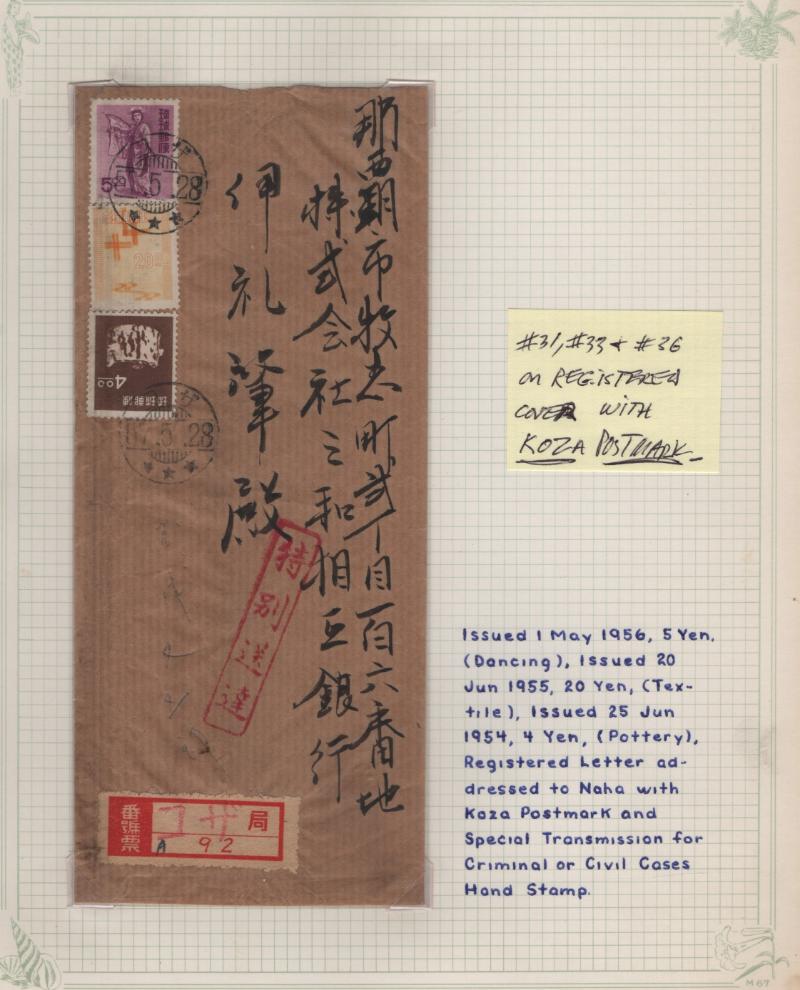 琉球郵便
5圓
ザ
57.5.28
20圓
4圓
琉球郵便
ザ
57.5.28
那覇市牧志町弐丁目百六番地
株式会社三和相互銀行
伊礼肇殿
特別送達
番號票
コザ局
A 92
#31, #33 + #36
on REGISTERED
COVER WITH
KOZA POSTMARK
Issued 1 May 1956, 5 Yen,
(Dancing), Issued 20
Jun 1955, 20 Yen, (Tex-
tile), Issued 25 Jun
1954, 4 Yen, (Pottery),
Registered Letter ad-
dressed to Naha with
Koza Postmark and
Special Transmission for
Criminal or Civil Cases
Hand Stamp.
M67